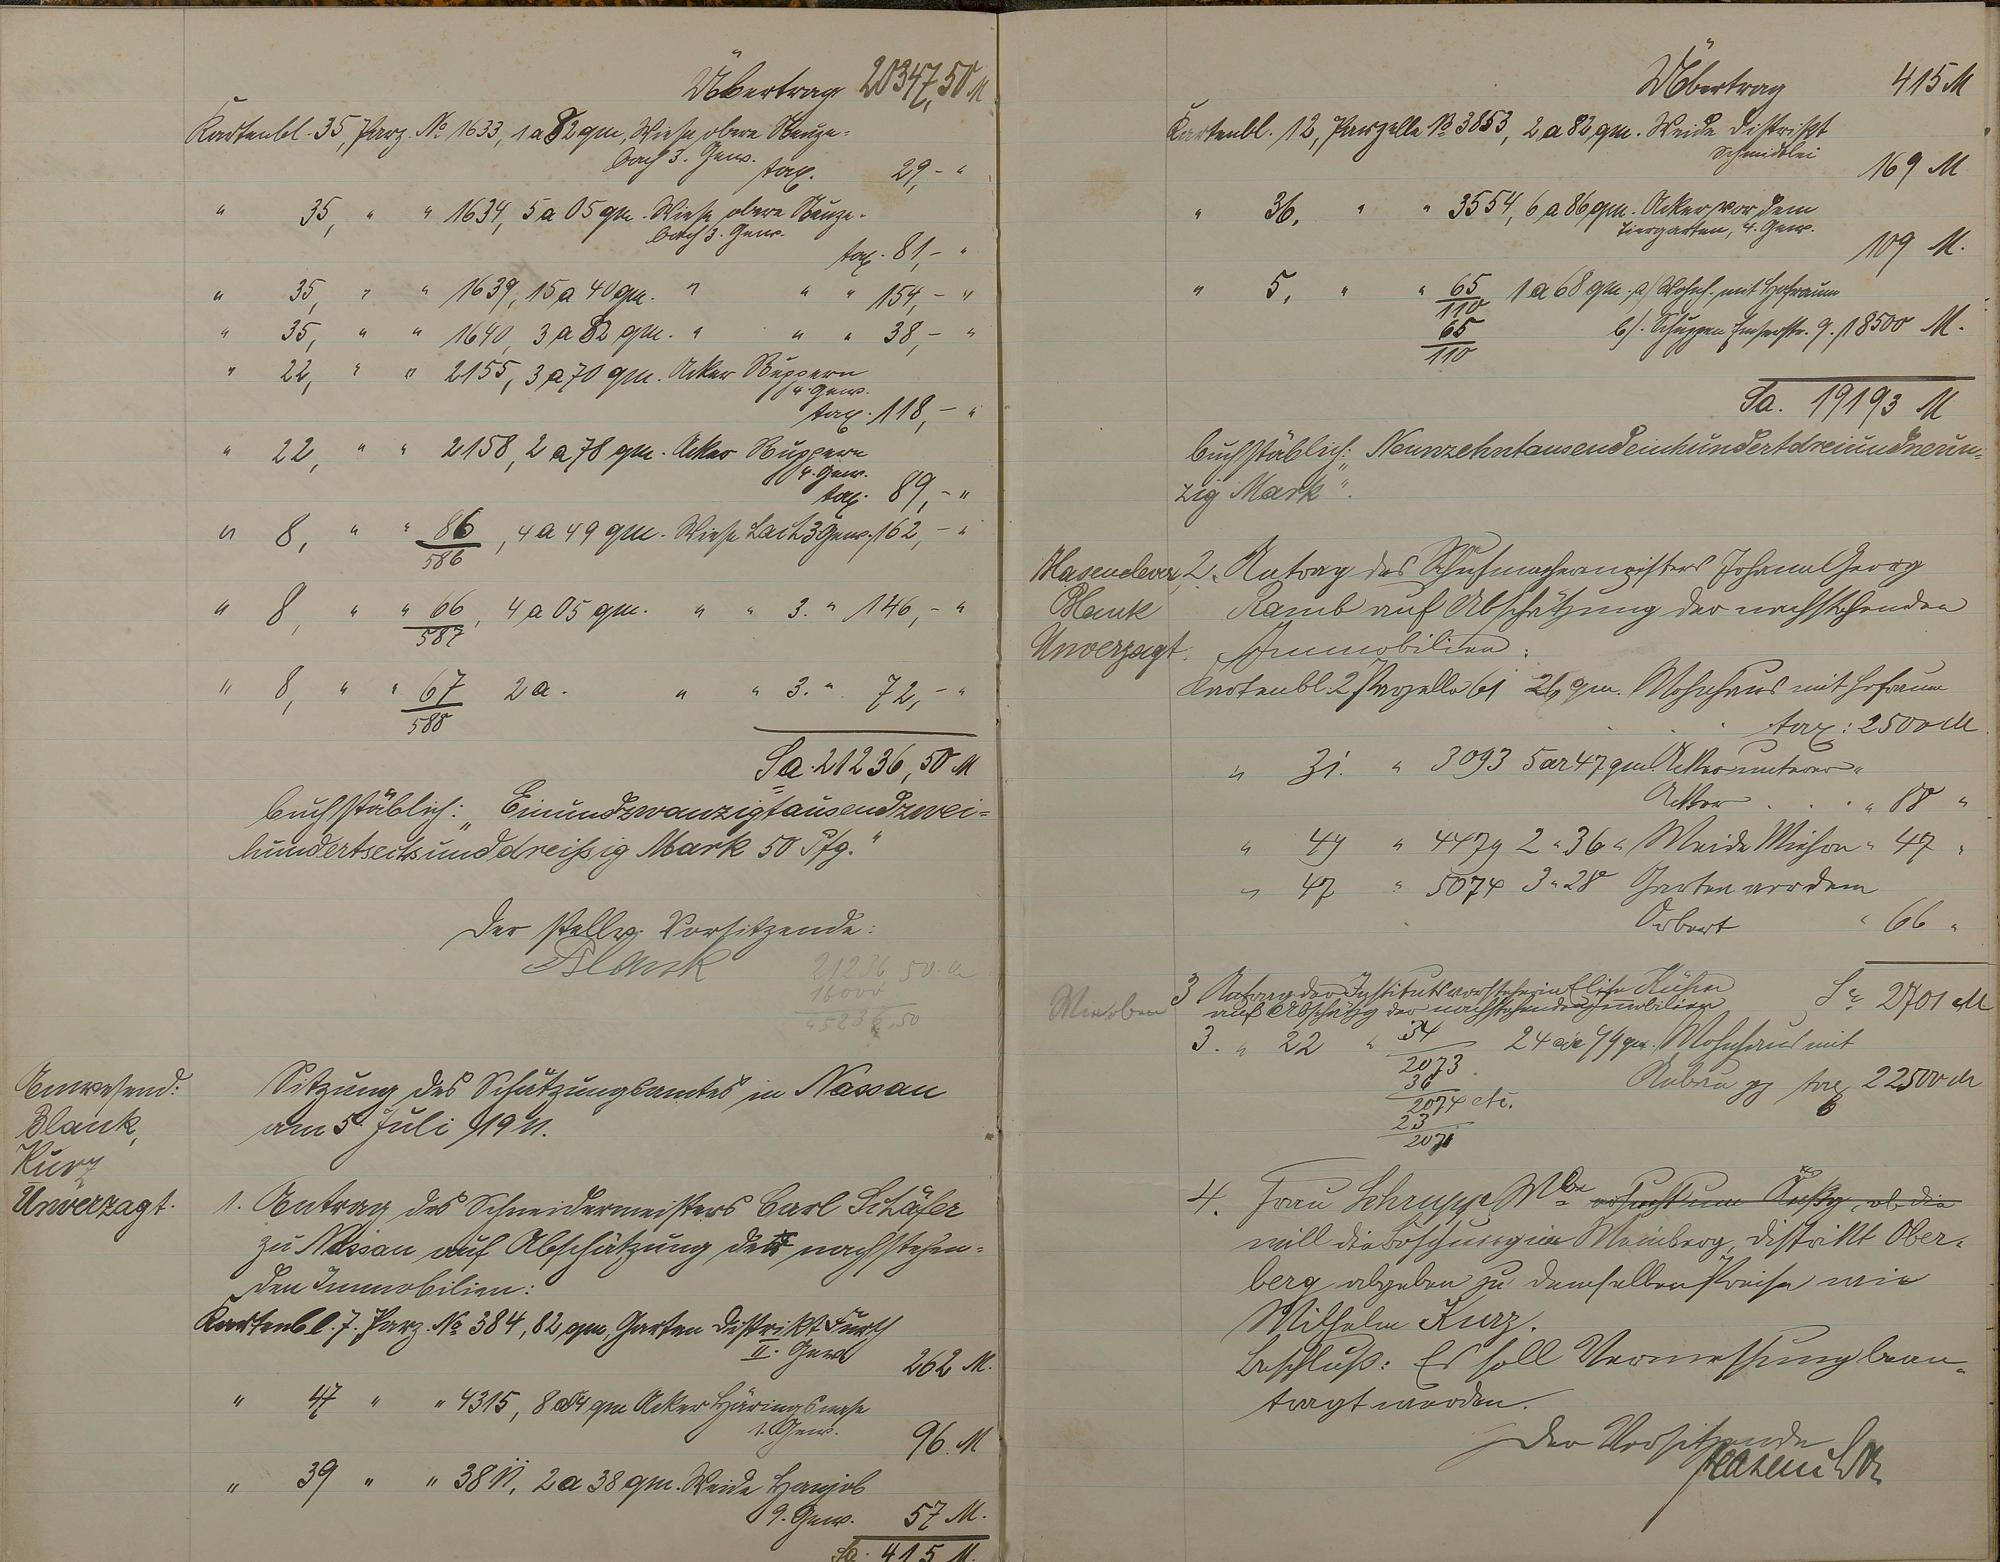 Übertrag 20347,50 M
Kartenbl. 35, Parz. No 1633, 1 a 82 qm, Wiese obere Neuze-
bach 3. Gew.
tax. 29,- "
" 35, " " 1634, 5 a 05 qm. Wiese obere Neuze-
bach 3. Gew.
tax. 81,- "
" 35, " " 1639, 15 a 40 qm. " " " 154,- "
" 35, " " 1640, 3 a 82 qm. " " " 38,- "
" 22, " " 2155, 3 a 70 qm. Acker Nuppern
4. Gew.
tax. 118,- "
" 22, " " 2158, 2 a 78 qm. Acker Nuppern
4. Gew.
tax. 89,- "
" 8, " " 86/586, 4 a 49 qm. Wiese Lach 3 Gew. 162,- "
" 8, " " 66/587, 4 a 05 qm. " " 3. " 146,- "
" 8, " " 67/588 2 a. " " 3. " 72,- "
Sa. 21236,50 M
buchstäblich: „Einundzwanzigtausendzwei-
hundertsechsunddreißig Mark 50 Pfg."
Der stellv. Vorsitzende:
Blank
21236,50 M
16000
5236,50
Anwesend:
Blank,
Kurz
Unverzagt.
Sitzung des Schätzungsamtes in Nassau
am 5. Juli 1911.
1. Antrag des Schneidermeisters Carl Schäfer
zu Nassau auf Abschätzung der nachstehen-
den Immobilien:
Kartenbl. 7. Parz. No 384, 82 qm, Garten Distrikt Furth
II. Gew. 262 M.
" 47 " " 4315, 8 a 84 qm Acker Häringswese
1. Gew. 96. M
" 39 " " 3811, 2 a 38 qm. Weide
9. Gew. 57 M.
Sa. 415 M.
Übertrag 415 M
Kartenbl. 12, Parzelle No 3853, 2 a 82 qm. Weide Distrikt
Schmidtlei
169 M
" 36, " " 3554, 6 a 86 qm. Acker vor dem
Tiergarten, 4. Gew.
109 M.
" 5, " " 65/110 1 a 68 qm. a) Wohnh. mit Hofraum
65/110 b). Schuppen Emserstr. 9. 18500 M.
Sa. 19193 M
buchstäblich: „Neunzehntausendeinhundertdreiundneun-
zig Mark".
Hasenclever,
Blank
Unverzagt.
2. Antrag des Schuhmachermeisters Johann Georg
Ramb auf Abschätzung der nachstehenden
Immobilien:
Kartenbl. 2 Parzelle 61 26 qm. Wohnhaus mit Hofraum
tax: 2500 M
" 31. " 3093 5 ar 47 qm Acker unterer
Acker . . . " 88 "
" 44 " 4479 2 " 36 " Weide " 47 "
" 47 " 5074 3 " 28 Garten vor dem
" 66 "
Sa 2701 M
3 Antrag der Institutsvorsteherin Elise Kühn
auf Abschätzg der nachstehenden Immobilien
3. " 22 " 34/2073 24 ar 49 qm. Wohnhaus mit
36/2074 etc. tax 22500 M
23/2071
4. Frau Schrupp Wbe ersucht um , ob die
will die Böschung im Weinberg, Distrikt Ober-
berg abgeben zu demselben Preise wie
Wilhelm Kurz.
Beschluß: Es soll Vermessung bean-
tragt werden.
Der Vorsitzende
Hasenclever